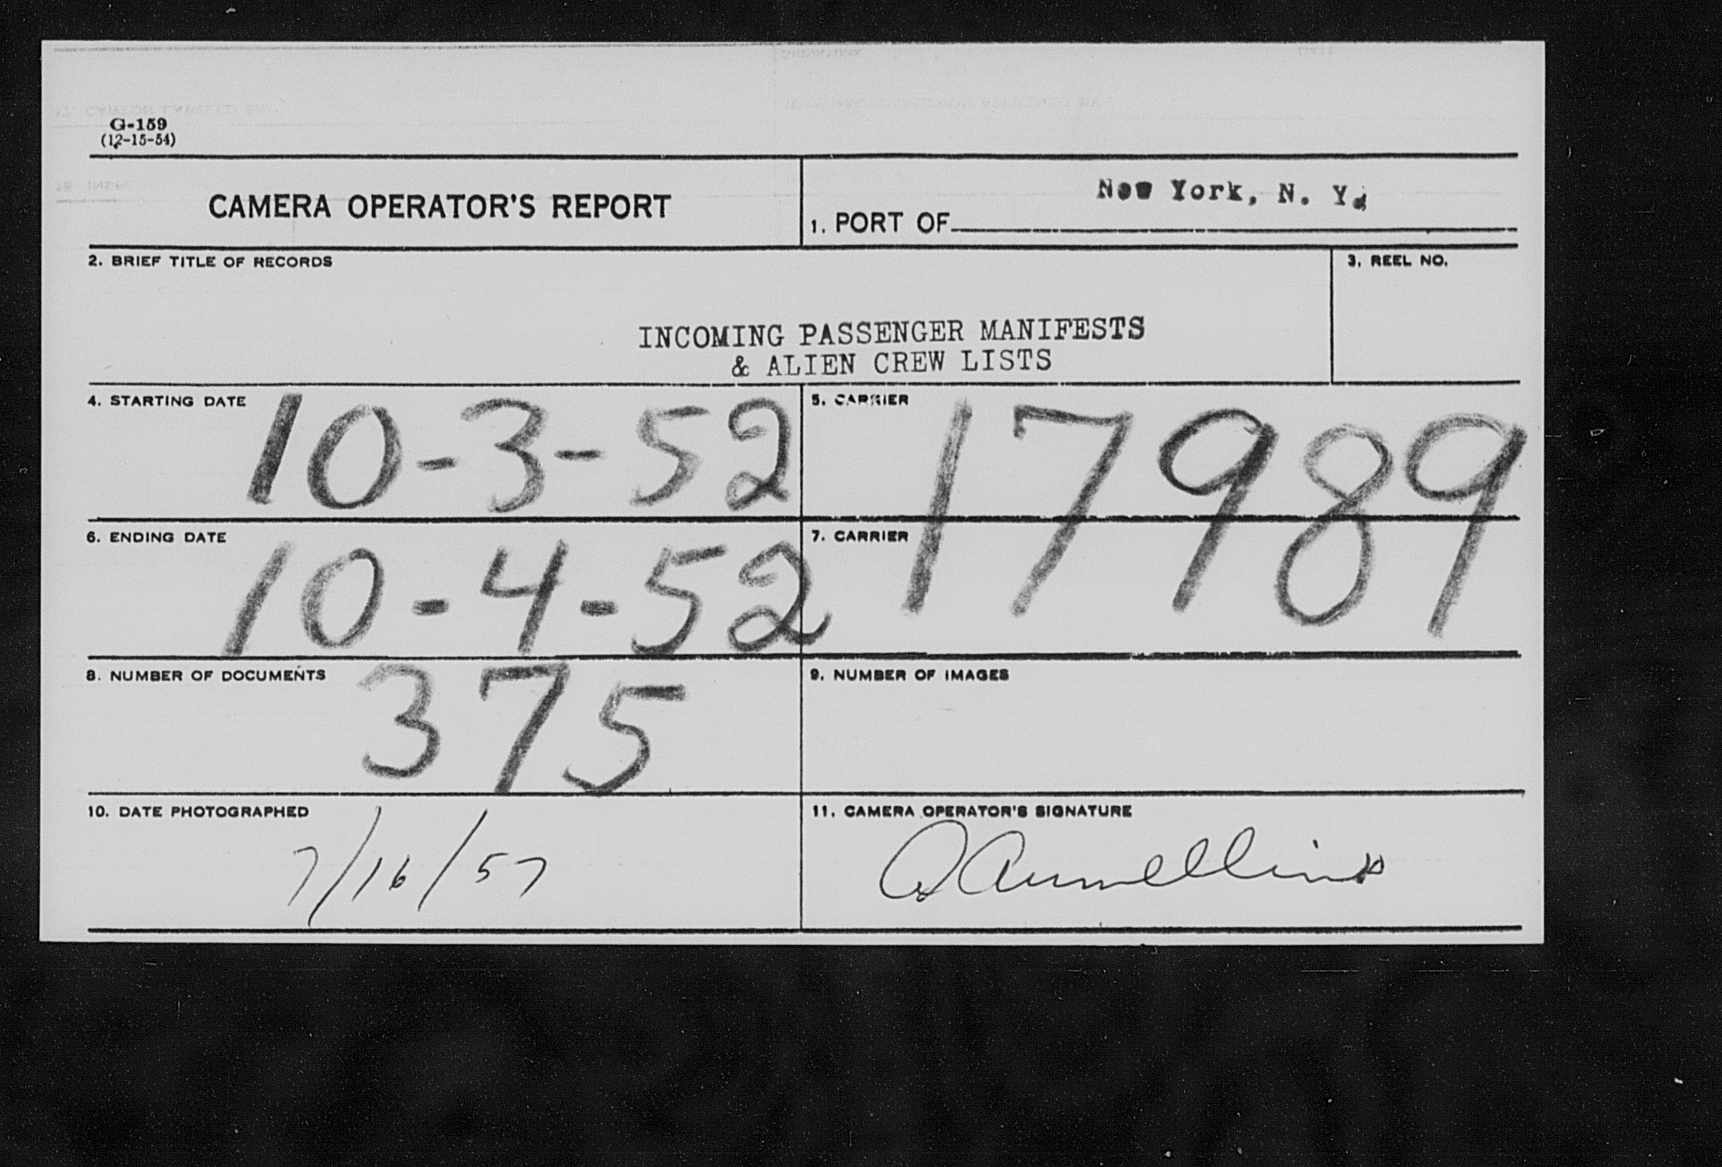 G-159
(12-15-54)
CAMERA OPERATOR'S REPORT
1. PORT OF New York, N. Y.
2. BRIEF TITLE OF RECORDS
3. REEL NO.
INCOMING PASSENGER MANIFESTS
& ALIEN CREW LISTS
4. STARTING DATE 10-3-52
5. CARRIER 17989
6. ENDING DATE 10-4-52
7. CARRIER
8. NUMBER OF DOCUMENTS 375
9. NUMBER OF IMAGES
10. DATE PHOTOGRAPHED 7/16/57
11. CAMERA OPERATOR'S SIGNATURE